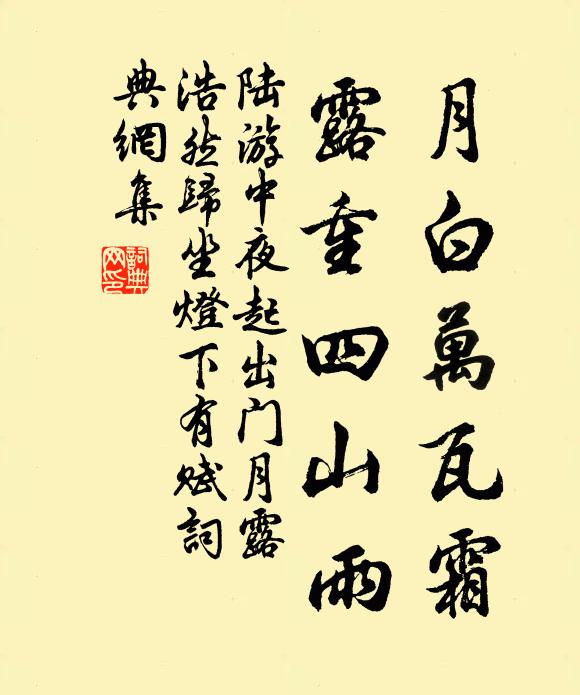 月白萬瓦霜
露重四山雨
陆游中夜起出门月露
浩然歸坐燈下有赋詞
典網集
詞典
网印